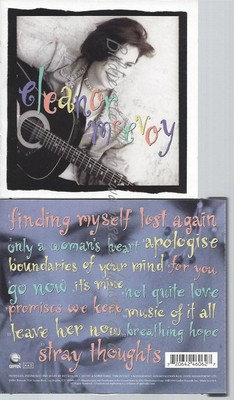 eleanor
mcevoy
finding myself lost again
only a woman's heart apologise
boundaries of your mind for you
go now it's mine not quite love
promises we keep music of it all
leave her now breathing hope
stray thoughts
GEFFEN